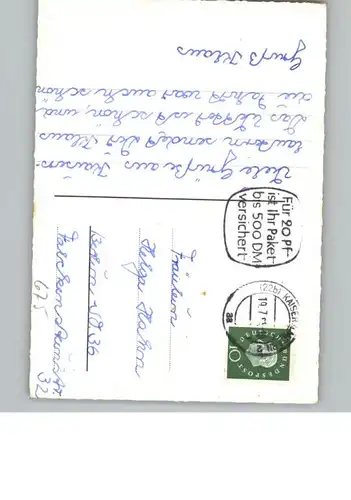 Viele Grüße aus Kaisers-
lautern sendet Dir Klaus
Das Wetter ist schön, und
die Fahrt war auch schön
Gruß Klaus
Für 20 Pf
ist Ihr Paket
bis 500 DM
versichert
(22b) KAISERS
19.7.
aa
DEUTSCHE BUNDESPOST
10
Fräulein
Helga Hahn
Berlin SO 36
Falckensteinstr.
32
675